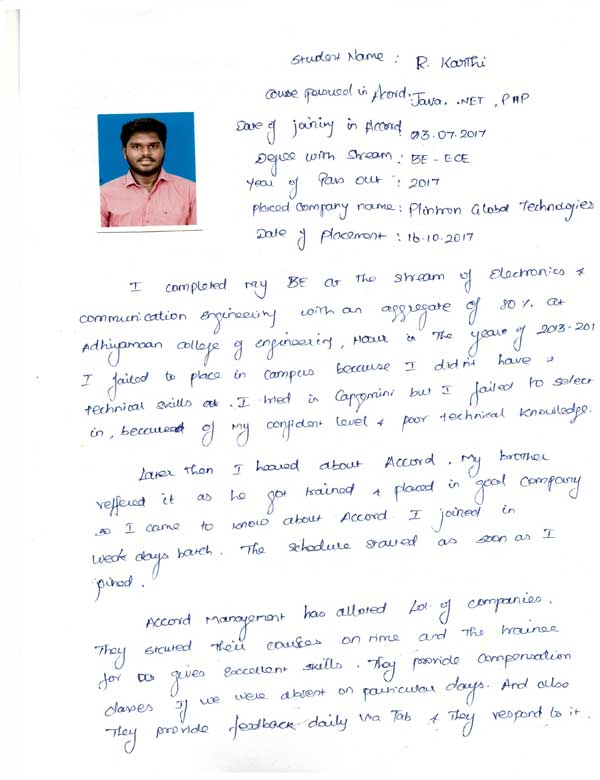 Student Name : R. Karthi
Course persued in Accord: Java, .NET, PHP
Date of joining in Accord 03.07.2017
Degree with Stream : BE - ECE
Year of Pass out : 2017
Placed Company name : Plintron Global Technologies
Date of placement : 16.10.2017
I completed my BE at the stream of Electronics &
communication engineering with an aggregate of 80% at
Adhiyamaan college of engineering, Hosur in the years of 2013-201
I failed to place in campus because I didn't have
technical skills . I tried in Capgemini but I failed to select
in, because of my confident level & poor technical knowledge.
Later then I heared about Accord. My brother
reffered it as he got trained & placed in good company
so I came to know about Accord. I joined in
week days batch. The schedule started as soon as I
joined.
Accord Management has alloted Lot of companies.
They started their courses on time and the trainee
for us gives excellent skills. They provide compensation
classes if we were absent on particular days. And also
They provide feedback daily via Tab & They respond to it.